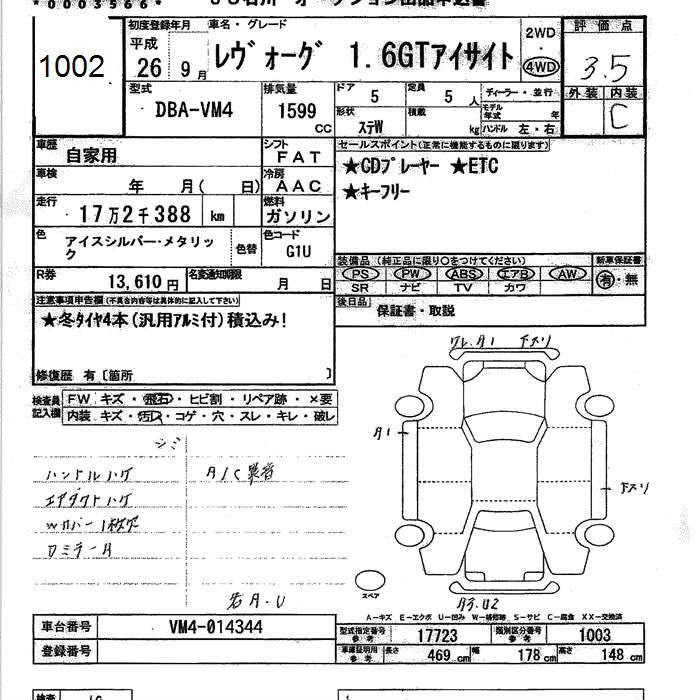 *0003566*
1002
初度登録年月
平成
26 9月
車名・グレード
レヴォーグ 1.6GTアイサイト
2WD
・
4WD
評価点
3.5
外装 内装
C
型式
DBA-VM4
排気量
1599
CC
ドア
5
定員
5 人
形状
ステW
積載
kg
ディーラー・並行
モデル年式 年
ハンドル 左・右
車歴
自家用
シフト
FAT
車検
年 月( 日)
冷房
AAC
走行
17万2千388 km
燃料
ガソリン
色
アイスシルバー・メタリック
色替
色コード
G1U
R券
13,610円
名変通知期限
月 日
セールスポイント(正常に機能するものに限ります)
★CDプレーヤー ★ETC
★キーフリー
装備品(純正品に限り○をつけてください)
新車保証書
PS PW ABS エアB AW
有・無
SR ナビ TV カワ
後日品
保証書・取説
注意事項申告欄(不具合内容等は具体的に記入して下さい)
★冬タイヤ4本(汎用アルミ付)積込み!
修復歴 有〔箇所 〕
検査員記入欄
FW キズ・飛石・ヒビ割・リペア跡・×要
内装 キズ・汚レ・コゲ・穴・スレ・キレ・破レ
シミ
ハンドルハゲ
エアダクトハゲ
ワレ、A1 下スリ
A1
下スリ
スペア
A-キズ E-エクボ U-凹み W-補修跡 S-サビ C-腐食 XX-交換済
車台番号
VM4-014344
登録番号
型式指定番号
参考
17723
類別区分番号
参考
1003
車庫証明用
参考
長さ
469 cm
幅
178 cm
高さ
148 cm
検査